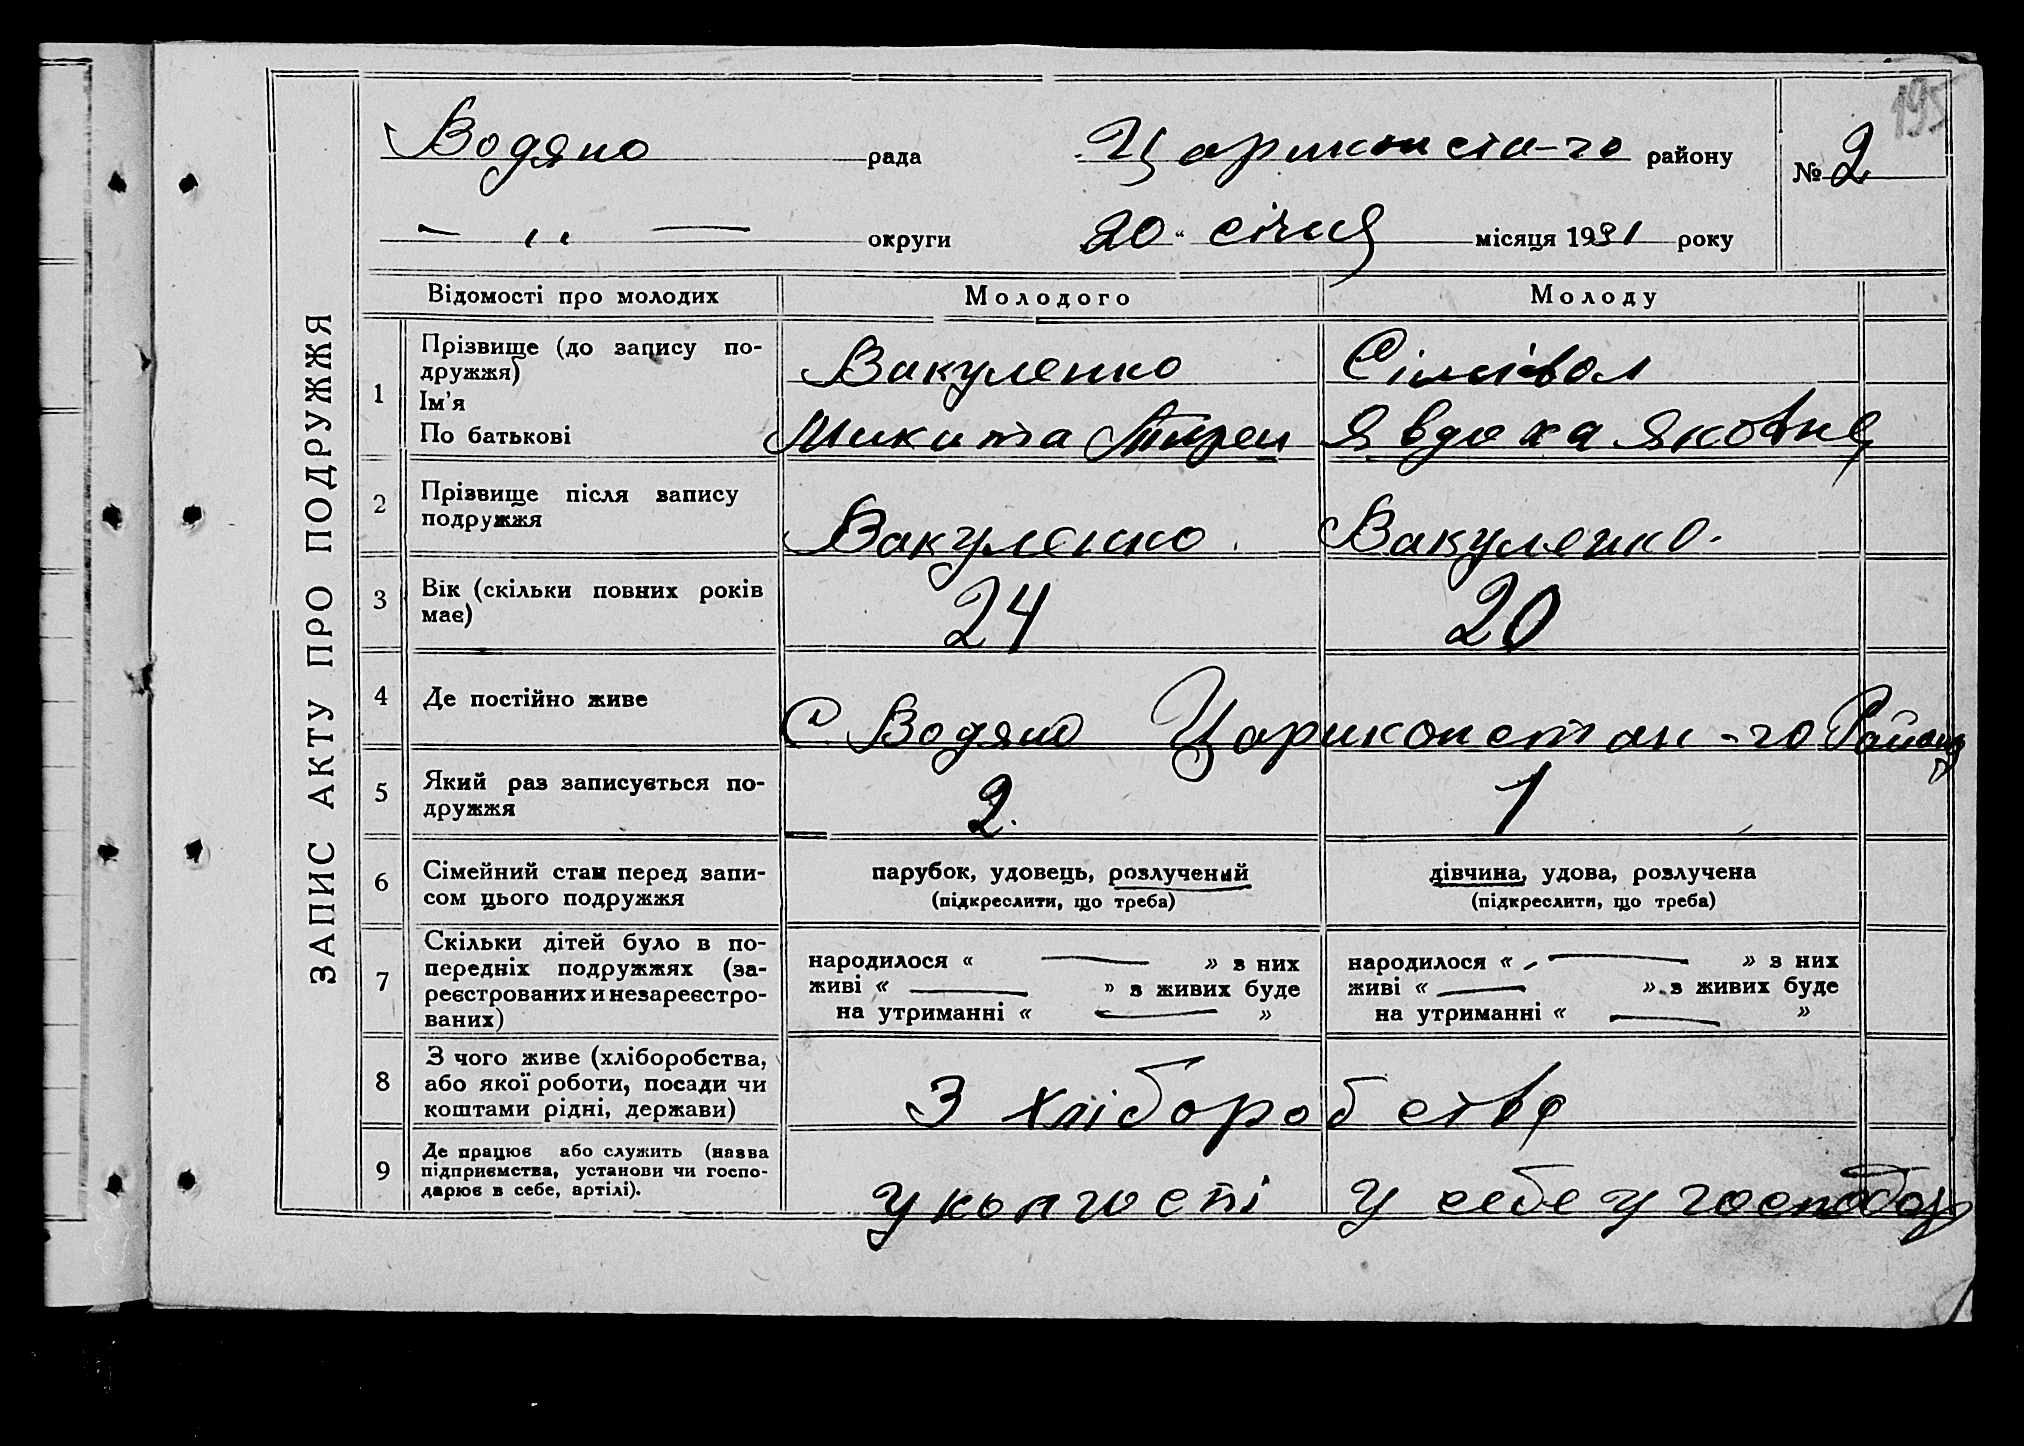 195
Водяно рада Цариконста-го району №2
— " — округи 20 " січня місяця 1931 року
ЗАПИС АКТУ ПРО ПОДРУЖЖЯ
Відомості про молодих Молодого Молоду
1 Прізвище (до запису по-
дружжя) Вакуленко
Ім'я
По батькові Микита Явдоха Яковня
2 Прізвище після запису
подружжя Вакуленко Вакуленко.
3 Вік (скільки повних років
має) 24 20
4 Де постійно живе С. Водяно Цариконстан-го Району
5 Який раз записується по-
дружжя 2. 1
6 Сімейний стан перед запи-
сом цього подружжя
парубок, удовець, розлучений
(підкреслити, що треба)
дівчина, удова, розлучена
(підкреслити, що треба)
7 Скільки дітей було в по-
передніх подружжях (за-
реєстрованих и незареєстро-
ваних)
народилося « — » з них
живі « — » з живих буде
на утриманні « — »
народилося « — » з них
живі « — » з живих буде
на утриманні « — »
8 З чого живе (хліборобства,
або якої роботи, посади чи
коштами рідні, держави) З хліборобства
9 Де працює або служить (назва
підприємства, установи чи госпо-
дарює в себе, артілі). у себе у